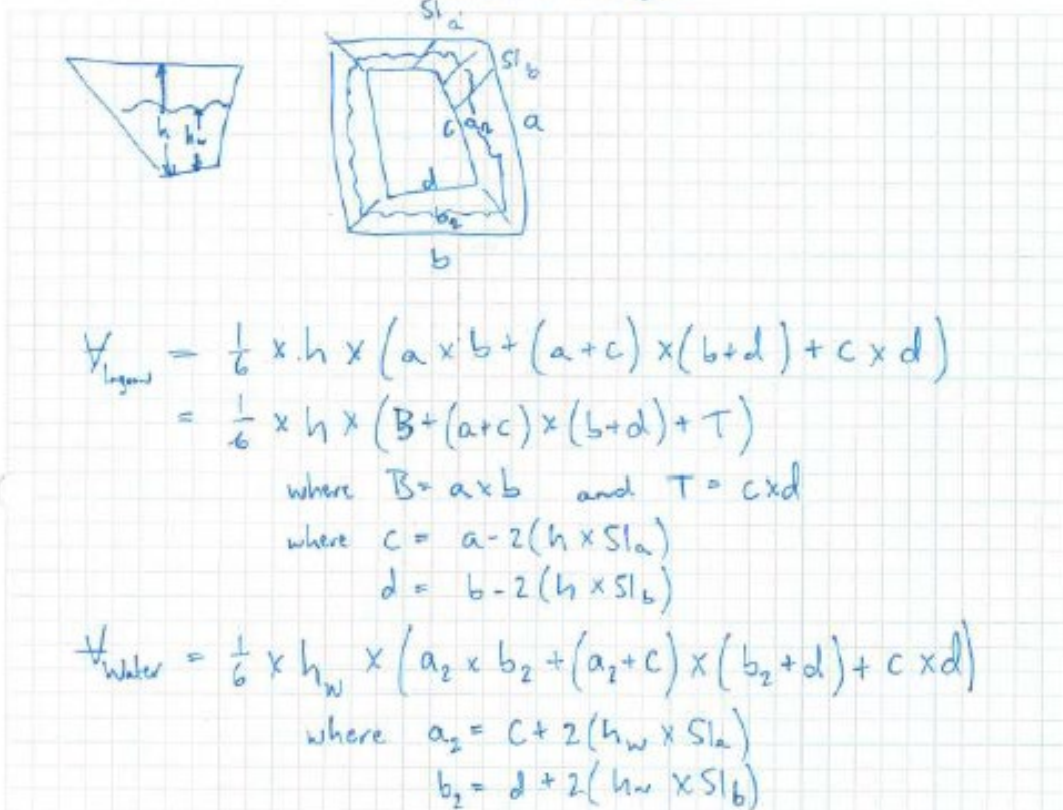 Sl_a
Sl_b
h
h_w
c
a_2
a
d
b_2
b
V_lagoon = 1/6 × h × (a × b + (a+c) × (b+d) + c × d)
= 1/6 × h × (B + (a+c) × (b+d) + T)
where B = a×b and T = c×d
where c = a - 2(h × Sl_a)
d = b - 2(h × Sl_b)
V_Water = 1/6 × h_w × (a_2 × b_2 + (a_2+c) × (b_2+d) + c × d)
where a_2 = c + 2(h_w × Sl_a)
b_2 = d + 2(h_w × Sl_b)